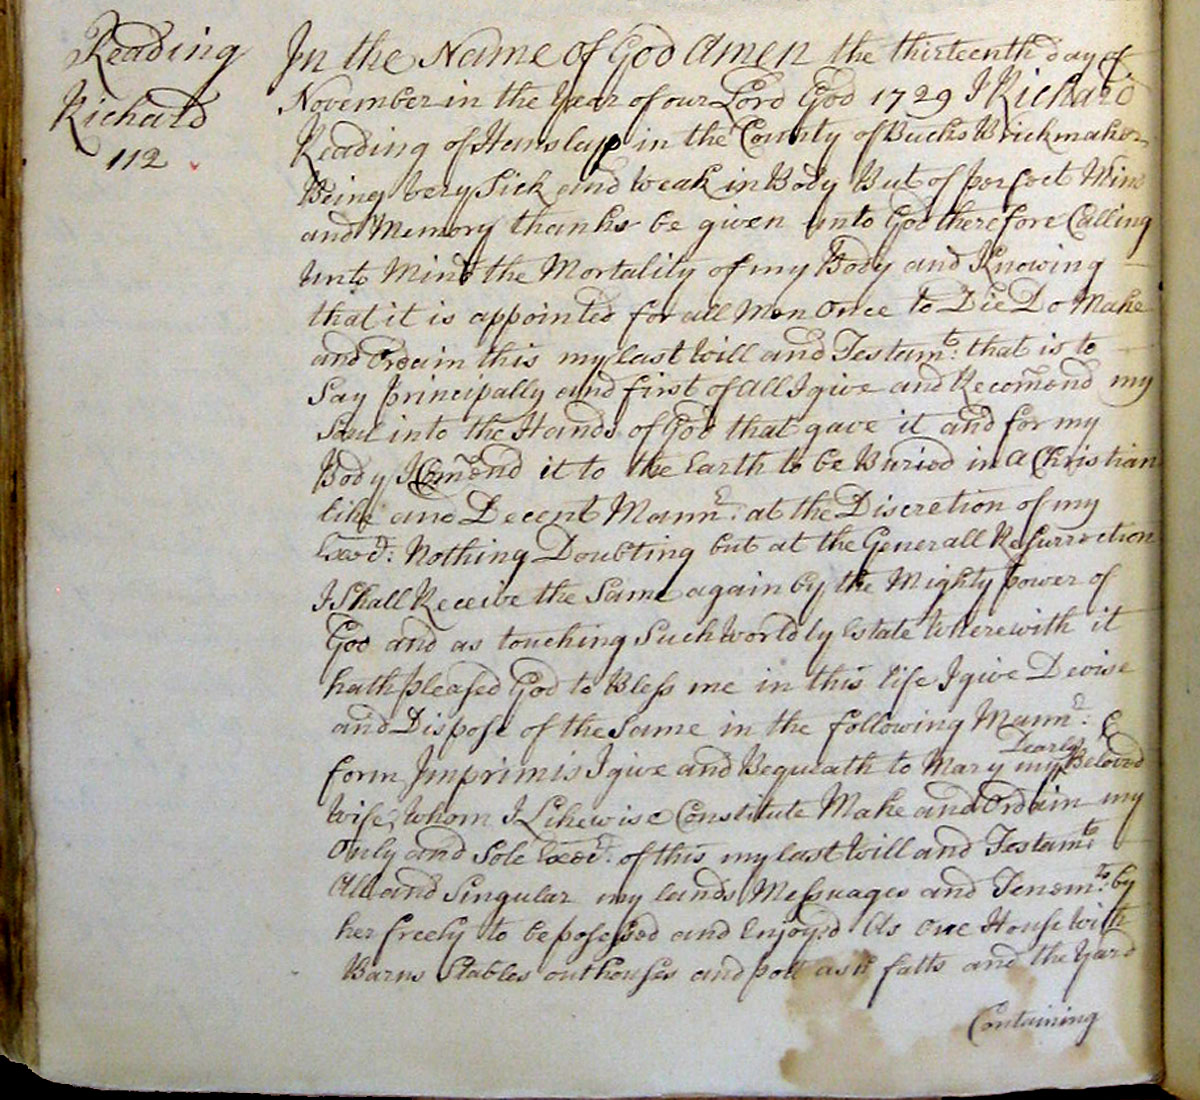 Reading
Richard
112
In the Name of God Amen the thirteenth day of
November in the Year of our Lord God 1729 I Richard
Reading of Hanslap in the County of Bucks Brickmaker
Being very Sick and weak in Body But of perfect Mind
and Memory thanks be given unto God therefore Calling
unto Mind the Mortality of my Body and Knowing
that it is appointed for all Men Once to Die Do Make
and Ordain this my last Will and Testamt: that is to
Say Principally and first of All I give and Recomend my
Soul into the Hands of God that gave it and for my
Body I Comend it to the Earth to be Buried in a Christian
like and Decent Mannr: at the Discretion of my
Nothing Doubting but at the Generall Resurrection
I Shall Receive the Same again by the Mighty Power of
God and as touching Such Worldly Estate Wherewith it
hath pleased God to Bless me in this life I give Devise
and Dispose of the Same in the following Mannr: &
form Imprimis I give and Bequeath to Mary my Dearly Beloved
Wife, Whom I Likewise Constitute Make and Ordain my
Only and Sole of this my last Will and Testamt
All and Singular my lands Messuages and Tenemts: by
her freely to be posessed and Enjoyed As One House With
Barns Stables outhouses and falls and the Yard
Containing